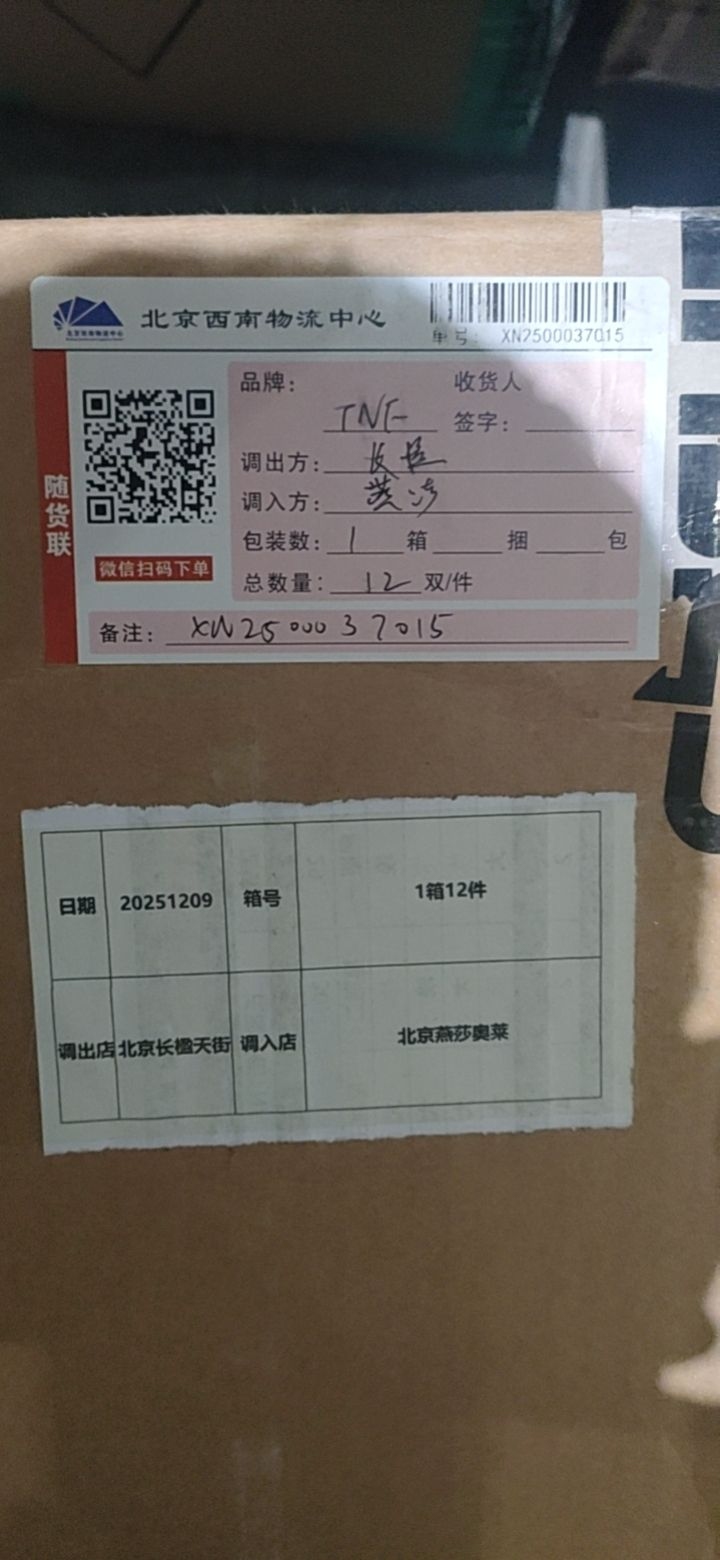 北京西南物流中心
单号: XN2500037015
随货联
微信扫码下单
品牌: TNF
收货人
签字:
调出方: 长楹
调入方: 燕莎
包装数: 1 箱 捆 包
总数量: 12 双/件
备注: XN2500037015
日期 20251209 箱号 1箱12件
调出店 北京长楹天街 调入店 北京燕莎奥莱